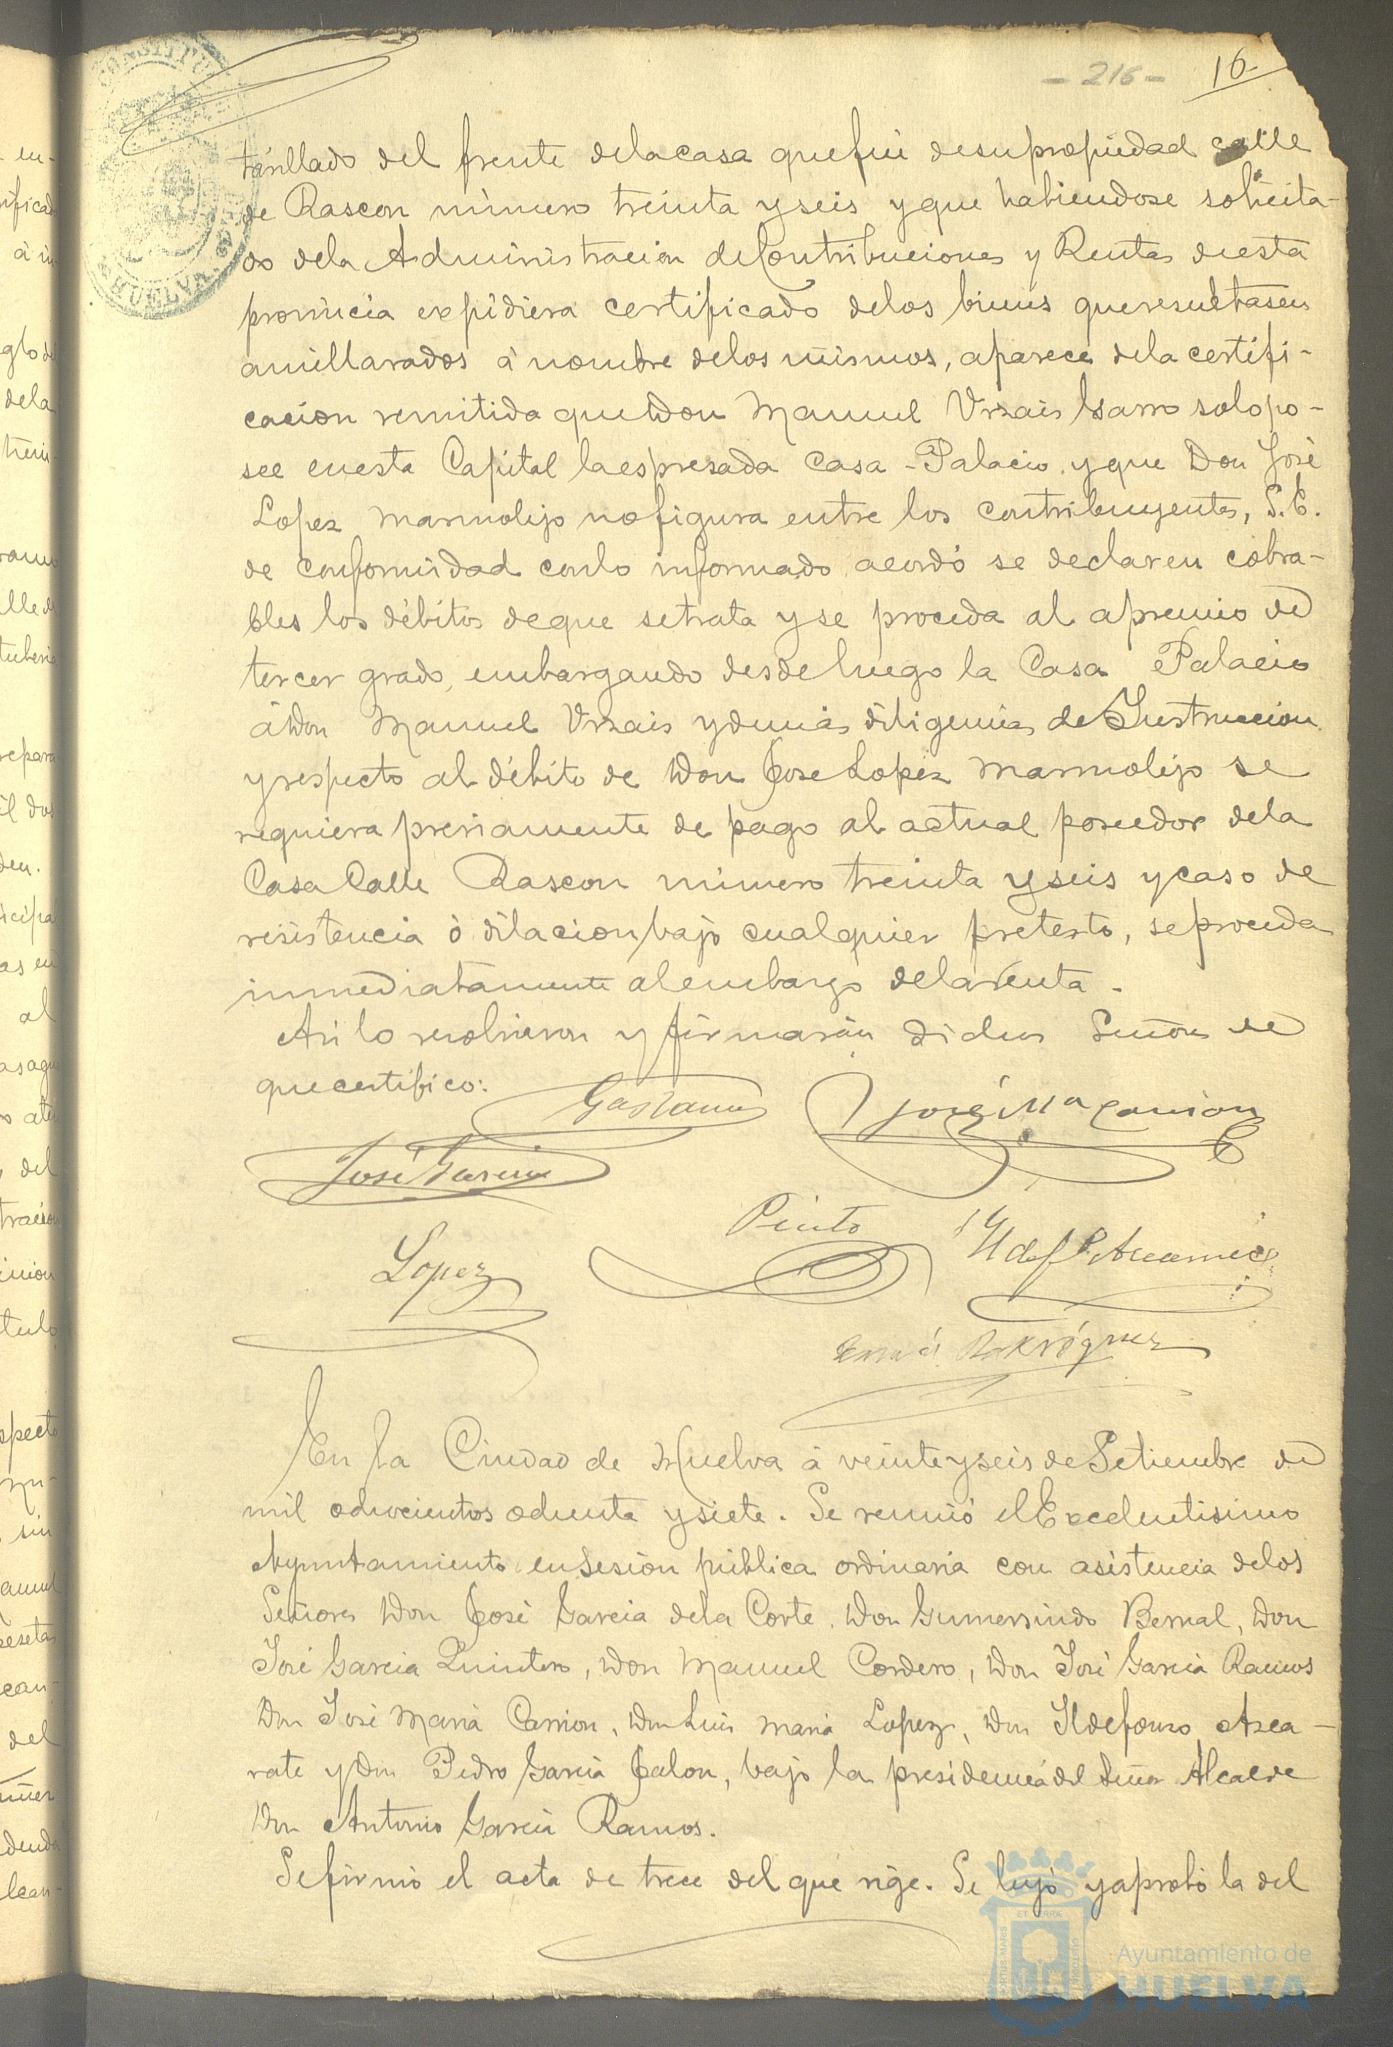 - 216 - 16
tarillado del frente dela casa que fué desu propiedad calle
de Rascon número treinta y seis y que habiendose solicita-
do dela Administracion de Contribuciones y Rentas de esta
provincia expidiera certificado delos bienes que resultasen
amillarados á nombre delos mismos, aparece dela certifi-
cacion remitida que Don Manuel Urzais Garro solo po-
see en esta Capital la espresada Casa-Palacio y que Don José
Lopez Marmolejo no figura entre los contribuyentes, S.E.
de conformidad conlo informado acordó se declaren cobra-
bles los débitos de que se trata y se proceda al apremio de
tercer grado, embargando desde luego la Casa Palacio
á Don Manuel Urzais y demás diligencias de Instruccion
y respecto al débito de Don Jose Lopez Marmolejo se
requiera previamente de pago al actual poseedor dela
Casa Calle Rascon número treinta y seis y caso de
resistencia ó dilacion, bajo cualquier pretesto, se proceda
inmediatamente al embargo dela renta.
Asi lo resolvieron y firmarán dichos Señores de
que certifico:
José Mª Carrion
José Garcia
Pinto
Lopez
Rodríguez
En la Ciudad de Huelva á veinte y seis de Setiembre de
mil ochocientos ochenta y siete. Se reunió el Excelentisimo
Ayuntamiento en Sesion pública ordinaria con asistencia delos
Señores Don José Garcia dela Corte, Don Gumersindo Bernal, Don
José Garcia Quintero, Don Manuel Cordero, Don José Garcia Ramos
Don José Maria Carrion, Don Luis Maria Lopez, Don Ildefonso Azca-
rate y Don Pedro Garcia Jalon, bajo la presidencia del Señor Alcalde
Don Antonio Garcia Ramos.
Se firmó el acta de trece del que rige. Se leyó y aprobó la del
Ayuntamiento de
HUELVA